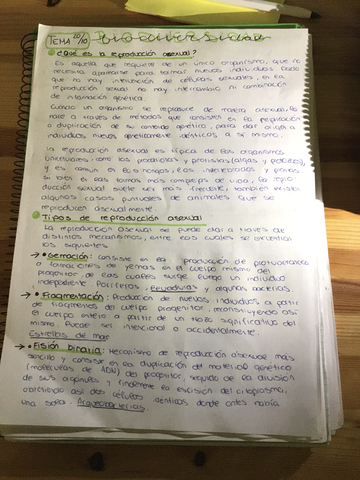 TEMA 10
Biodiversidad
¿Qué es la reproducción asexual?
Es aquella que requiere de un único organismo, que no
necesita aparearse para formar nuevos individuos dado
que no hay intervención de células sexuales, en la
reproducción sexual no hay intercambio ni combinación
de información genética.
Cuando un organismo se reproduce de manera asexual, lo
hace a través de métodos que consisten en la
o duplicación de su contenido genético, para dar origen a
individuos nuevos genéticamente idénticos a sí mismo.
La reproducción asexual es típica de los organismos
unicelulares, como los procariotas y protistas (algas y protozoos),
y es común en los hongos, los invertebrados y
en formas más complejas de vida, la repro-
ducción sexual suele ser más frecuente, también existen
algunos casos puntuales de animales que se
reproducen asexualmente.
Tipos de reproducción asexual
La reproducción asexual se puede dar a través de
distintos mecanismos, entre los cuales se encuentran
los siguientes
→ • Gemación: consiste en la producción de protuberancias
o formaciones de yemas en el cuerpo mismo del
progenitor de las cuales surge luego un individuo
independiente. Poríferos, levaduras y algunas bacterias.
→ • Fragmentación: Producción de nuevos individuos a partir
de fragmentos del cuerpo progenitor, reconstruyendo así
el cuerpo entero a partir de un trozo significativo del
mismo. Puede ser intencional o accidentalmente.
Estrellas de mar
→ • Fisión binaria: Mecanismo de reproducción asexual más
sencillo y consiste en la duplicación del material genético
(moléculas de ADN) del progenitor, seguido de la división
de sus orgánulos y finalmente la escisión del citoplasma,
obteniendo así dos células idénticas donde antes había
una sola. Arqueobacterias.